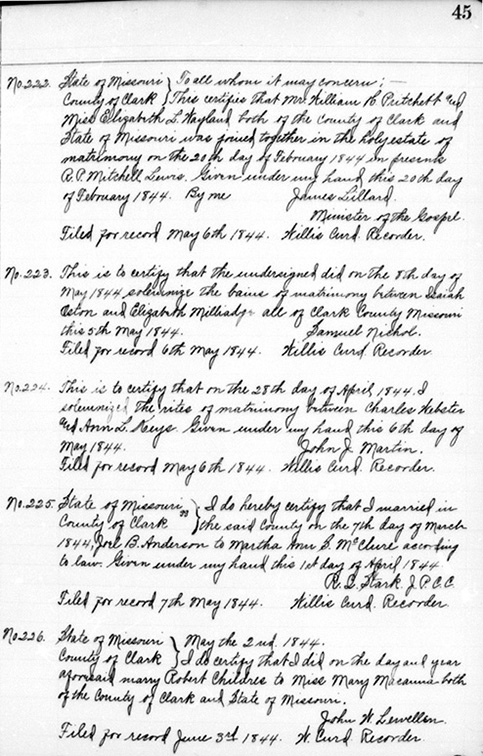 45
No. 222. State of Missouri } To all whom it may concern; —
County of Clark } This certifies that Mr. William C. Pritchett and
Miss Elizabeth L. Wayland both of the County of Clark and
State of Missouri was joined together in the holy estate of
matrimony on the 20th day of February 1844 in presents
R. P. Mitchell Lewis. Given under my hand this 20th day
of February 1844. By me James Lillard.
Minister of the Gospel.
Filed for record May 6th 1844. Willis Curd. Recorder.
No. 223. This is to certify that the undersigned did on the 8th day of
May 1844 solemnize the bains of matrimony between Isaiah
and Elizabeth all of Clark County Missouri
this 5th May 1844. Samuel Nichol.
Filed for record 6th May 1844. Willis Curd Recorder
No. 224. This is to certify that on the 28th day of April 1844. I
solemnized the rites of matrimony between Charles Webster
and Ann L. Given under my hand this 6th day of
May 1844. John J. Martin.
Filed for record May 6th 1844. Willis Curd. Recorder.
No. 225. State of Missouri } I do hereby certify that I married in
County of Clark } ss the said County on the 7th day of March
1844, Joel B. Anderson to Martha Ann S. McClure according
to law. Given under my hand this 1st day of April 1844
R. S. Stark J.P.C.C.
Filed for record 7th May 1844. Willis Curd. Recorder
No. 226. State of Missouri } May the 2nd. 1844.
County of Clark } I do certify that I did on the day and year
aforesaid marry Robert Childres to Miss Mary Macanna both
of the County of Clark and State of Missouri.
John W. Lewellen.
Filed for record June 3rd 1844. W. Curd Recorder.